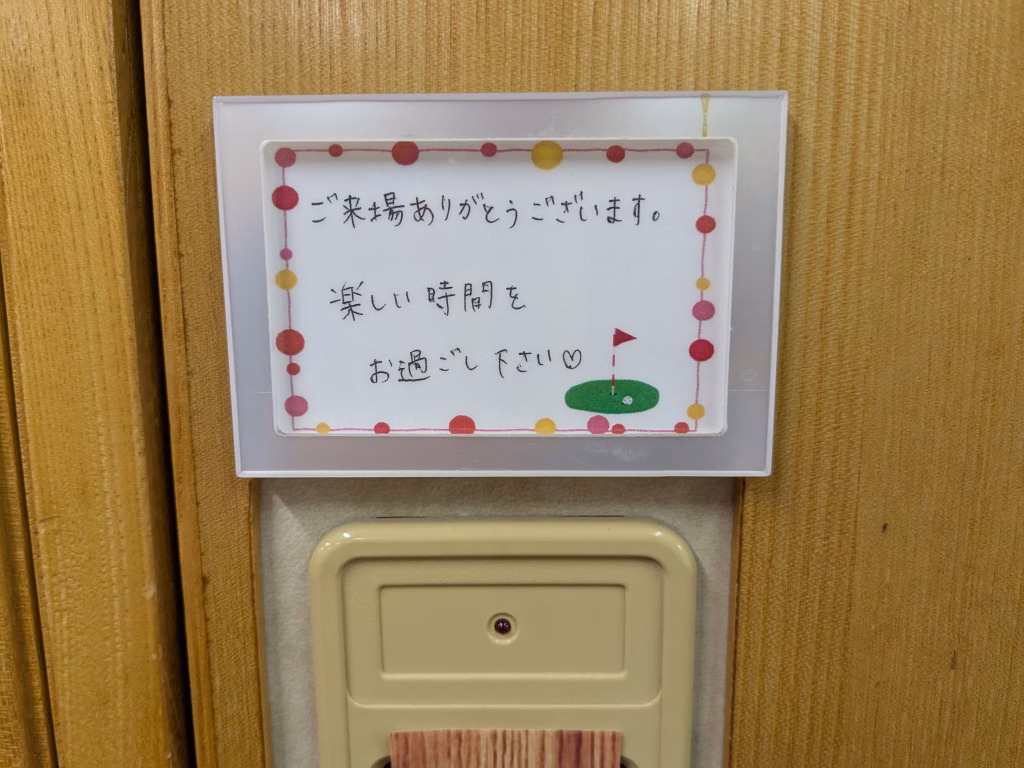 ご来場ありがとうございます。
楽しい時間を
お過ごし下さい♡